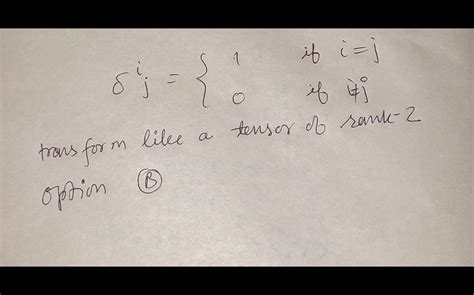 δ^i_j = { 1 if i=j
0 if i≠j
transform like a tensor of rank-2
option Ⓑ